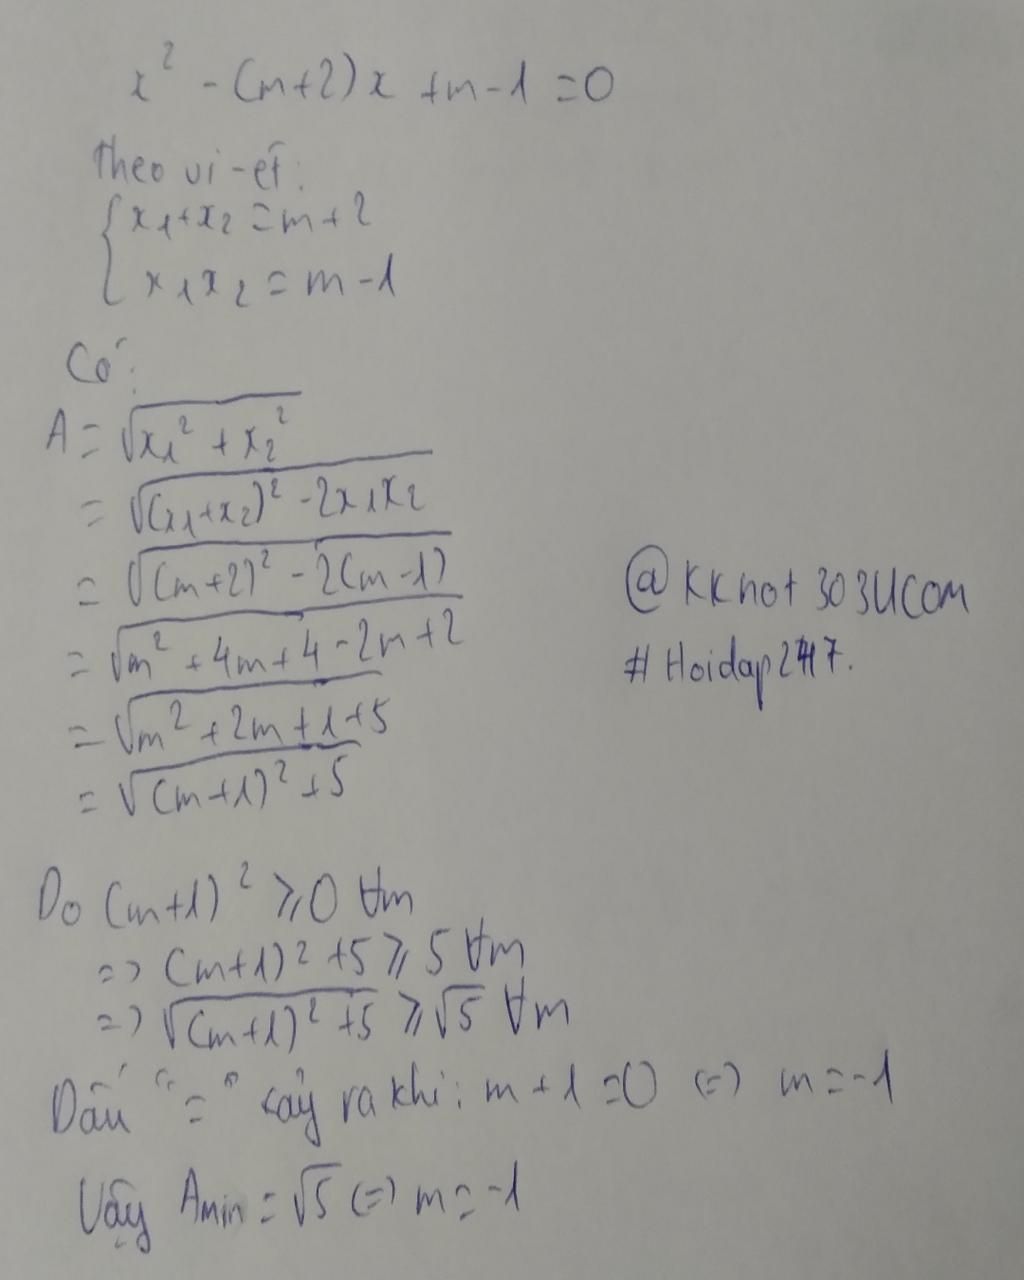 x² - (m+2)x + m - 1 = 0
Theo vi-ét:
{ x₁+x₂ = m+2
x₁x₂ = m-1
Có:
A = √(x₁² + x₂²)
= √((x₁+x₂)² - 2x₁x₂)
= √((m+2)² - 2(m-1))
= √(m² + 4m + 4 - 2m + 2)
= √(m² + 2m + 1 + 5)
= √((m+1)² + 5)
@KKnot303Ucom
#Hoidap247.
Do (m+1)² ⩾ 0 ∀m
=> (m+1)² + 5 ⩾ 5 ∀m
=> √((m+1)² + 5) ⩾ √5 ∀m
Dấu "=" xảy ra khi: m+1=0 (=) m=-1
Vậy Amin = √5 (=) m=-1